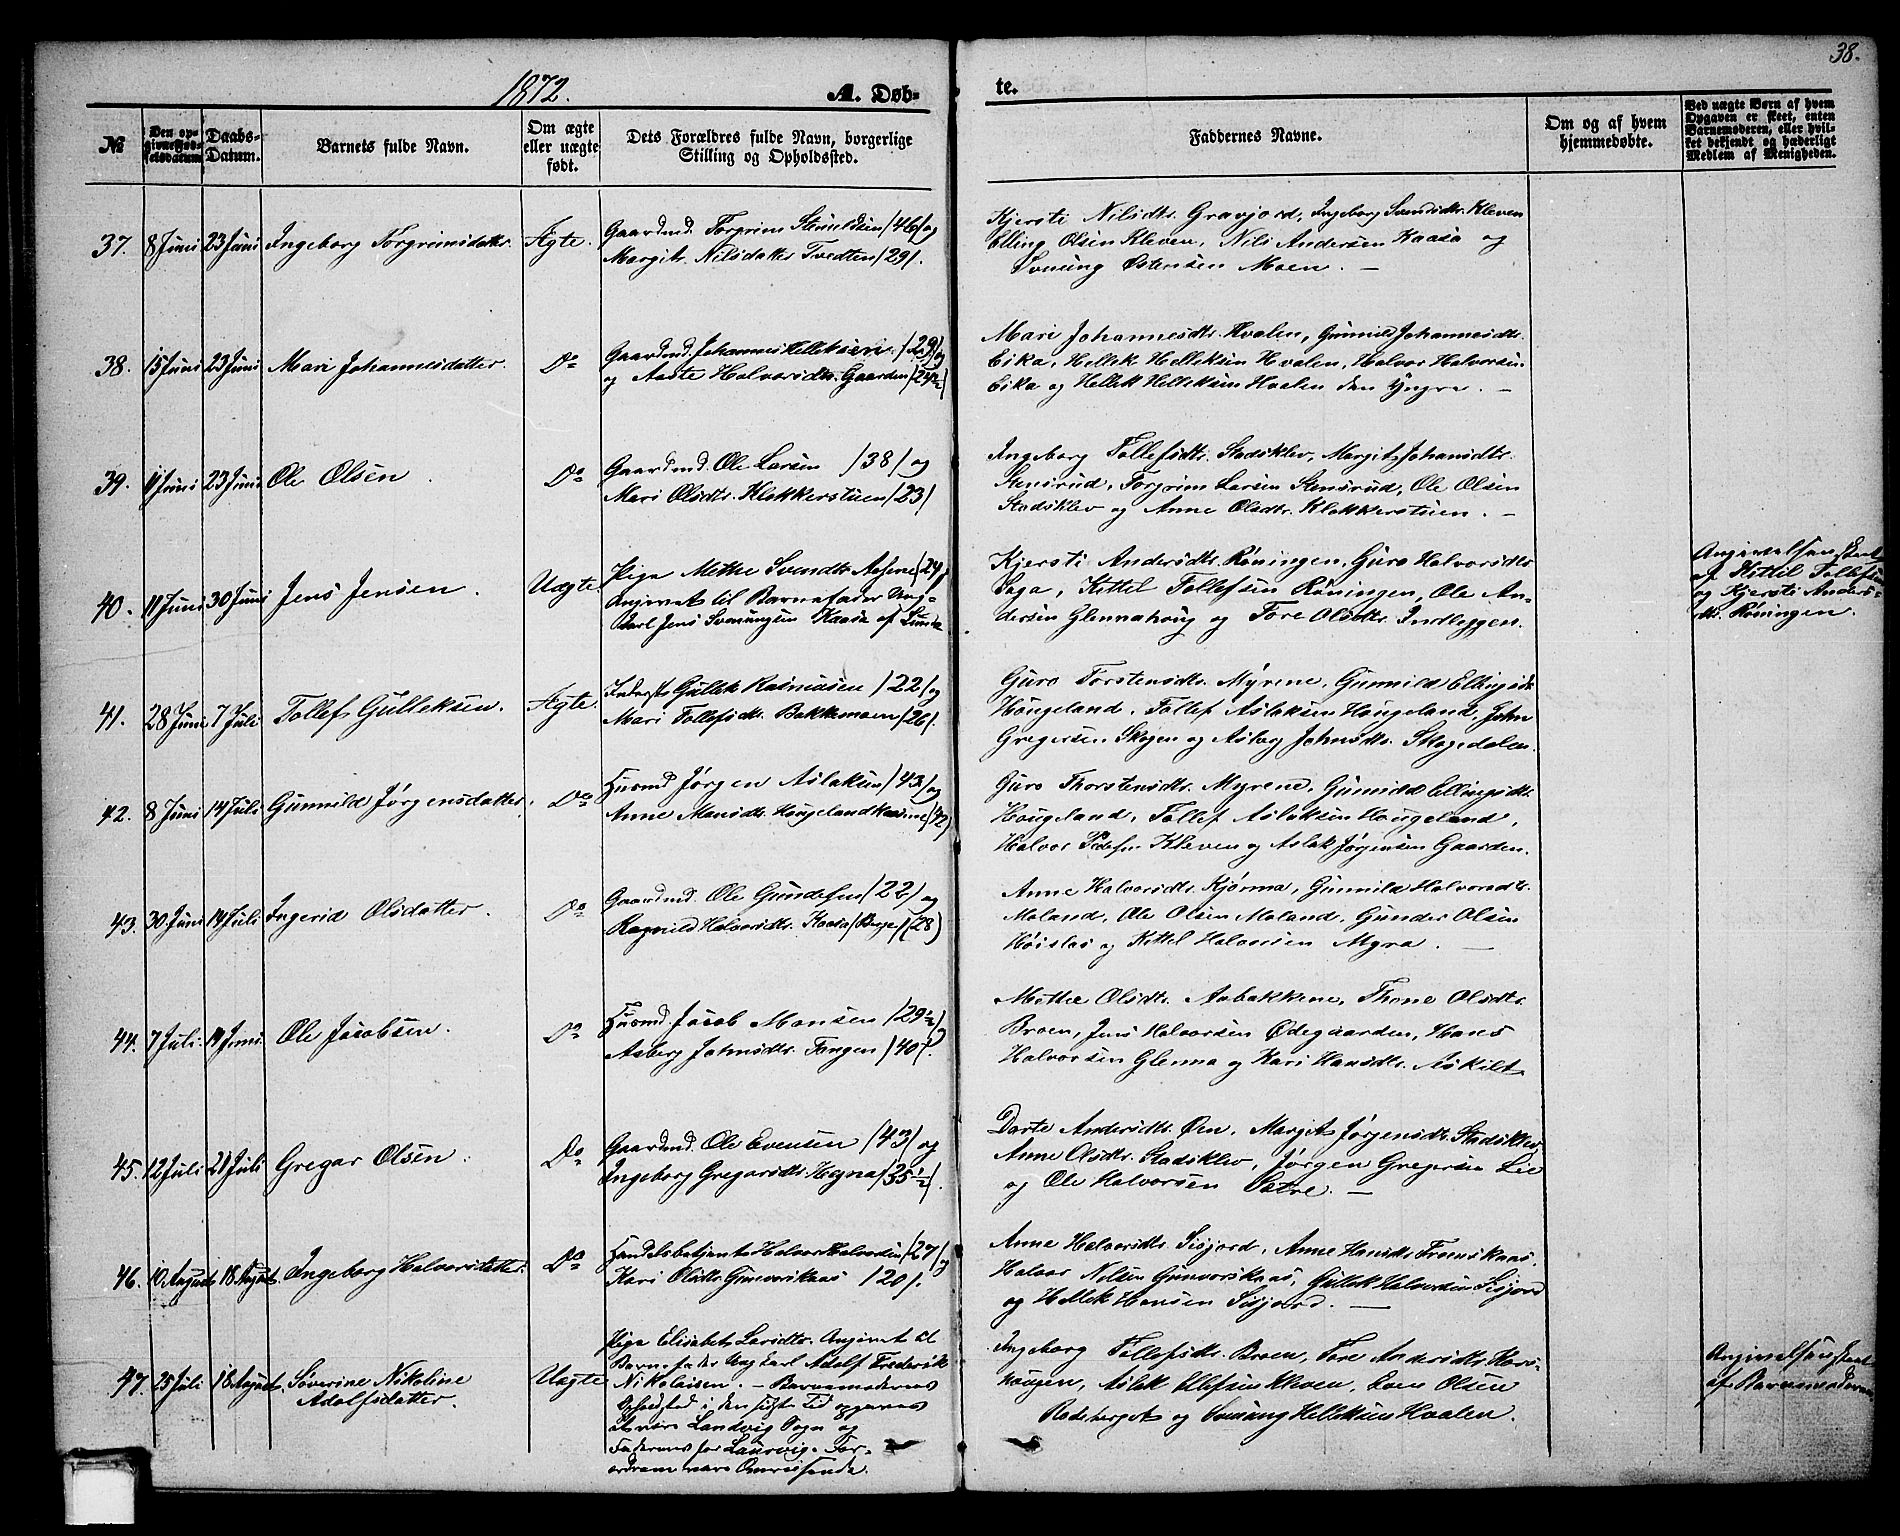 38.
1872.
A. Døb-
te.
№
Den op-
givne Fød-
selsdatum
Daabs-
Datum.
Barnets fulde Navn.
Om ægte
eller uægte
født.
Dets Forældres fulde Navn, borgerlige
Stilling og Opholdssted.
Faddernes Navne.
Om og af hvem
hjemmedøbte.
Ved uægte Børn af hvem
Opgaven er skeet, enten
Barnemoderen, eller hvil-
ket bekjendt og hæderligt
Medlem af Menigheden.
37. 8 Juni 23 Juni Ingeborg Torgrimsdatter. Ægte.
Gaardmd. Torgrim /46/ og
Margit Nilsdatter Tvedten /29/.
Kjersti Nilsdtr. Gravjord, Ingeborg Svendsdtr. Kleven
Elling Olsen Kleven, Nils Andersen Kaasa og
Svenung Østensen Moen. —
38. 15 Juni 23 Juni Mari Johannesdatter. Do
Gaardmd. Johannes Helleksen /29/ og
og Aaste Halvorsdtr. Gaarden /24½/
Mari Johannesdtr. Hvalen, Gunnild Johannesdtr.
Eika, Hellek Helleksen Hvalen, Halvor Halvorsen
Eika og Hellek Helleksen Haalen den Yngre. —
39. 11 Juni 23 Juni Ole Olsen. Do
Gaardmd. Ole Larsen /38/ og
Mari Olsdtr. Klokkerstuen /23/
Ingeborg Tollefsdtr. Stadsklev, Margit Johansdtr.
Stensrud, Torgrim Larsen Stensrud, Ole Olsen
Stadsklev og Anne Olsdtr. Klokkerstuen. —
40. 11 Juni 30 Juni Jens Jensen. Uægte.
Pige Methe Svendsdtr. /24/
Angivet til Barnefader Ung-
karl Jens Svenungsen Kaasa af Lunde
Kjersti Andersdtr. Røningen, Guro Halvorsdtr.
Saga, Kittil Tollefsen Røningen, Ole An-
dersen Glennahoug og Tore Olsdtr. Indleggen.
Angivelsen skeet
af Kittil Tollefsen
og Kjersti Anders-
dtr. Røningen.
41. 28 Juni 7 Juli Tollef Gulleksen. Ægte.
Inderst Gullek Rasmusen /22/ og
Mari Tollefsdtr. Bakkemoen /26/.
Guro Torstensdtr. Myrene, Gunnild Ellingsdtr.
Hougeland, Tollef Aslaksen Hougeland, John
Gregersen Skogen og Asberg Johnsdtr. Skogedalen.
42. 8 Juni 14 Juli Gunnild Jørgensdatter. Do
Husmd. Jørgen Aslaksen /43/ og
Anne Hansdtr. Hougelandkaasine /42/
Guro Thorstensdtr. Myrene, Gunnild Ellingsdtr.
Hougeland, Tollef Aslaksen Hougeland,
Halvor Kleven og Aslak Jørgensen Gaarden.
43. 30 Juni 14 Juli Ingerid Olsdatter. Do
Gaardmd. Ole Gundesen /22/ og
Ragnild Halvorsdtr. Kaasa /Berge/ /28/
Anne Halvorsdtr. Kjørma, Gunnild Halvorsdtr.
Moland, Ole Olsen Moland, Gunder Olsen
Høislas og Kittel Halvorsen Myra. —
44. 7 Juli. 14 Juni. Ole Jacobsen. Do
Husmd. Jacob Monsen /29½/ og
Asberg Johnsdtr. Tangen /40/.
Methe Olsdtr. Aabakkene, Thone Olsdtr.
Broen, Jens Halvorsen Ødegaarden, Hans
Halvorsen Glenna og Kari Hansdtr. Askilt
45. 12 Juli 21 Juli Gregar Olsen. Do
Gaardmd. Ole Evensen /43/ og
Ingeborg Gregarsdtr. Hegna /35½/.
Dorte Andersdtr. Øen, Margit Jørgensdtr. Stadsklev,
Anne Olsdtr. Stadsklev, Jørgen Gregersen Lie
og Ole Halvorsen Sætre. —
46. 10 August 18 August Ingeborg Halvorsdatter. Do
Handelsbetjent Halvor Halvorsen /27/ og
Kari Olsdtr. Gunvorskaas /20/.
Anne Halvorsdtr. Sisjord, Anne Hansdtr.
Halvor Nilsen Gunvorskaas, Gullek Halvorsen Sisjord
og Hellek Hansen Sisjord. —
47. 25 Juli 18 August. Søverine Nikoline
Adolfsdatter. Uægte
Pige Elisabet Larsdtr. Angivet til
Barnefader Ungkarl Adolf Frederik
Nikolaisen. — Barnemoderens
Opholdsted i den sidste Tid opgaves
at være Landvig Sogn og
Faderens for Laurvig.
være Omreisende.
Ingeborg Tollefsdtr. Broen, Tore Andersdtr. Hors-
hougen, Aslek Kleven, Even Olsen
Radeberget og Svenung Helleksen Haalen.
Angivelsen skeet
af Barnemoderen